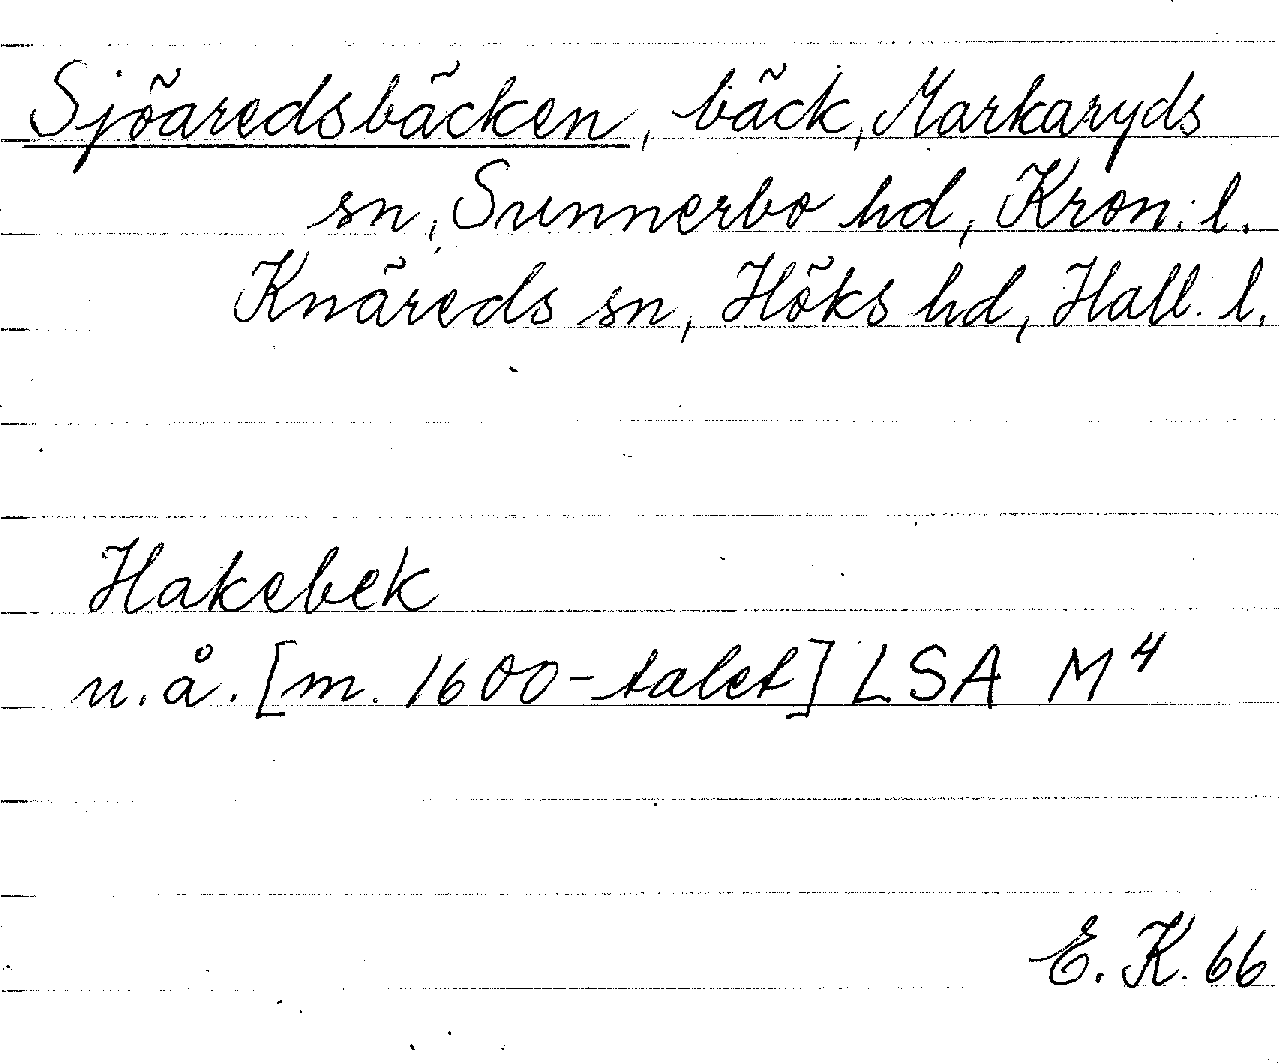 Sjöaredsbäcken, bäck, Markaryds
sn, Sunnerbo hd, Kron. l.
Knäreds sn, Höks hd, Hall. l.
Hakebek
u.å. [m. 1600-talet] LSA M4
E. K. 66